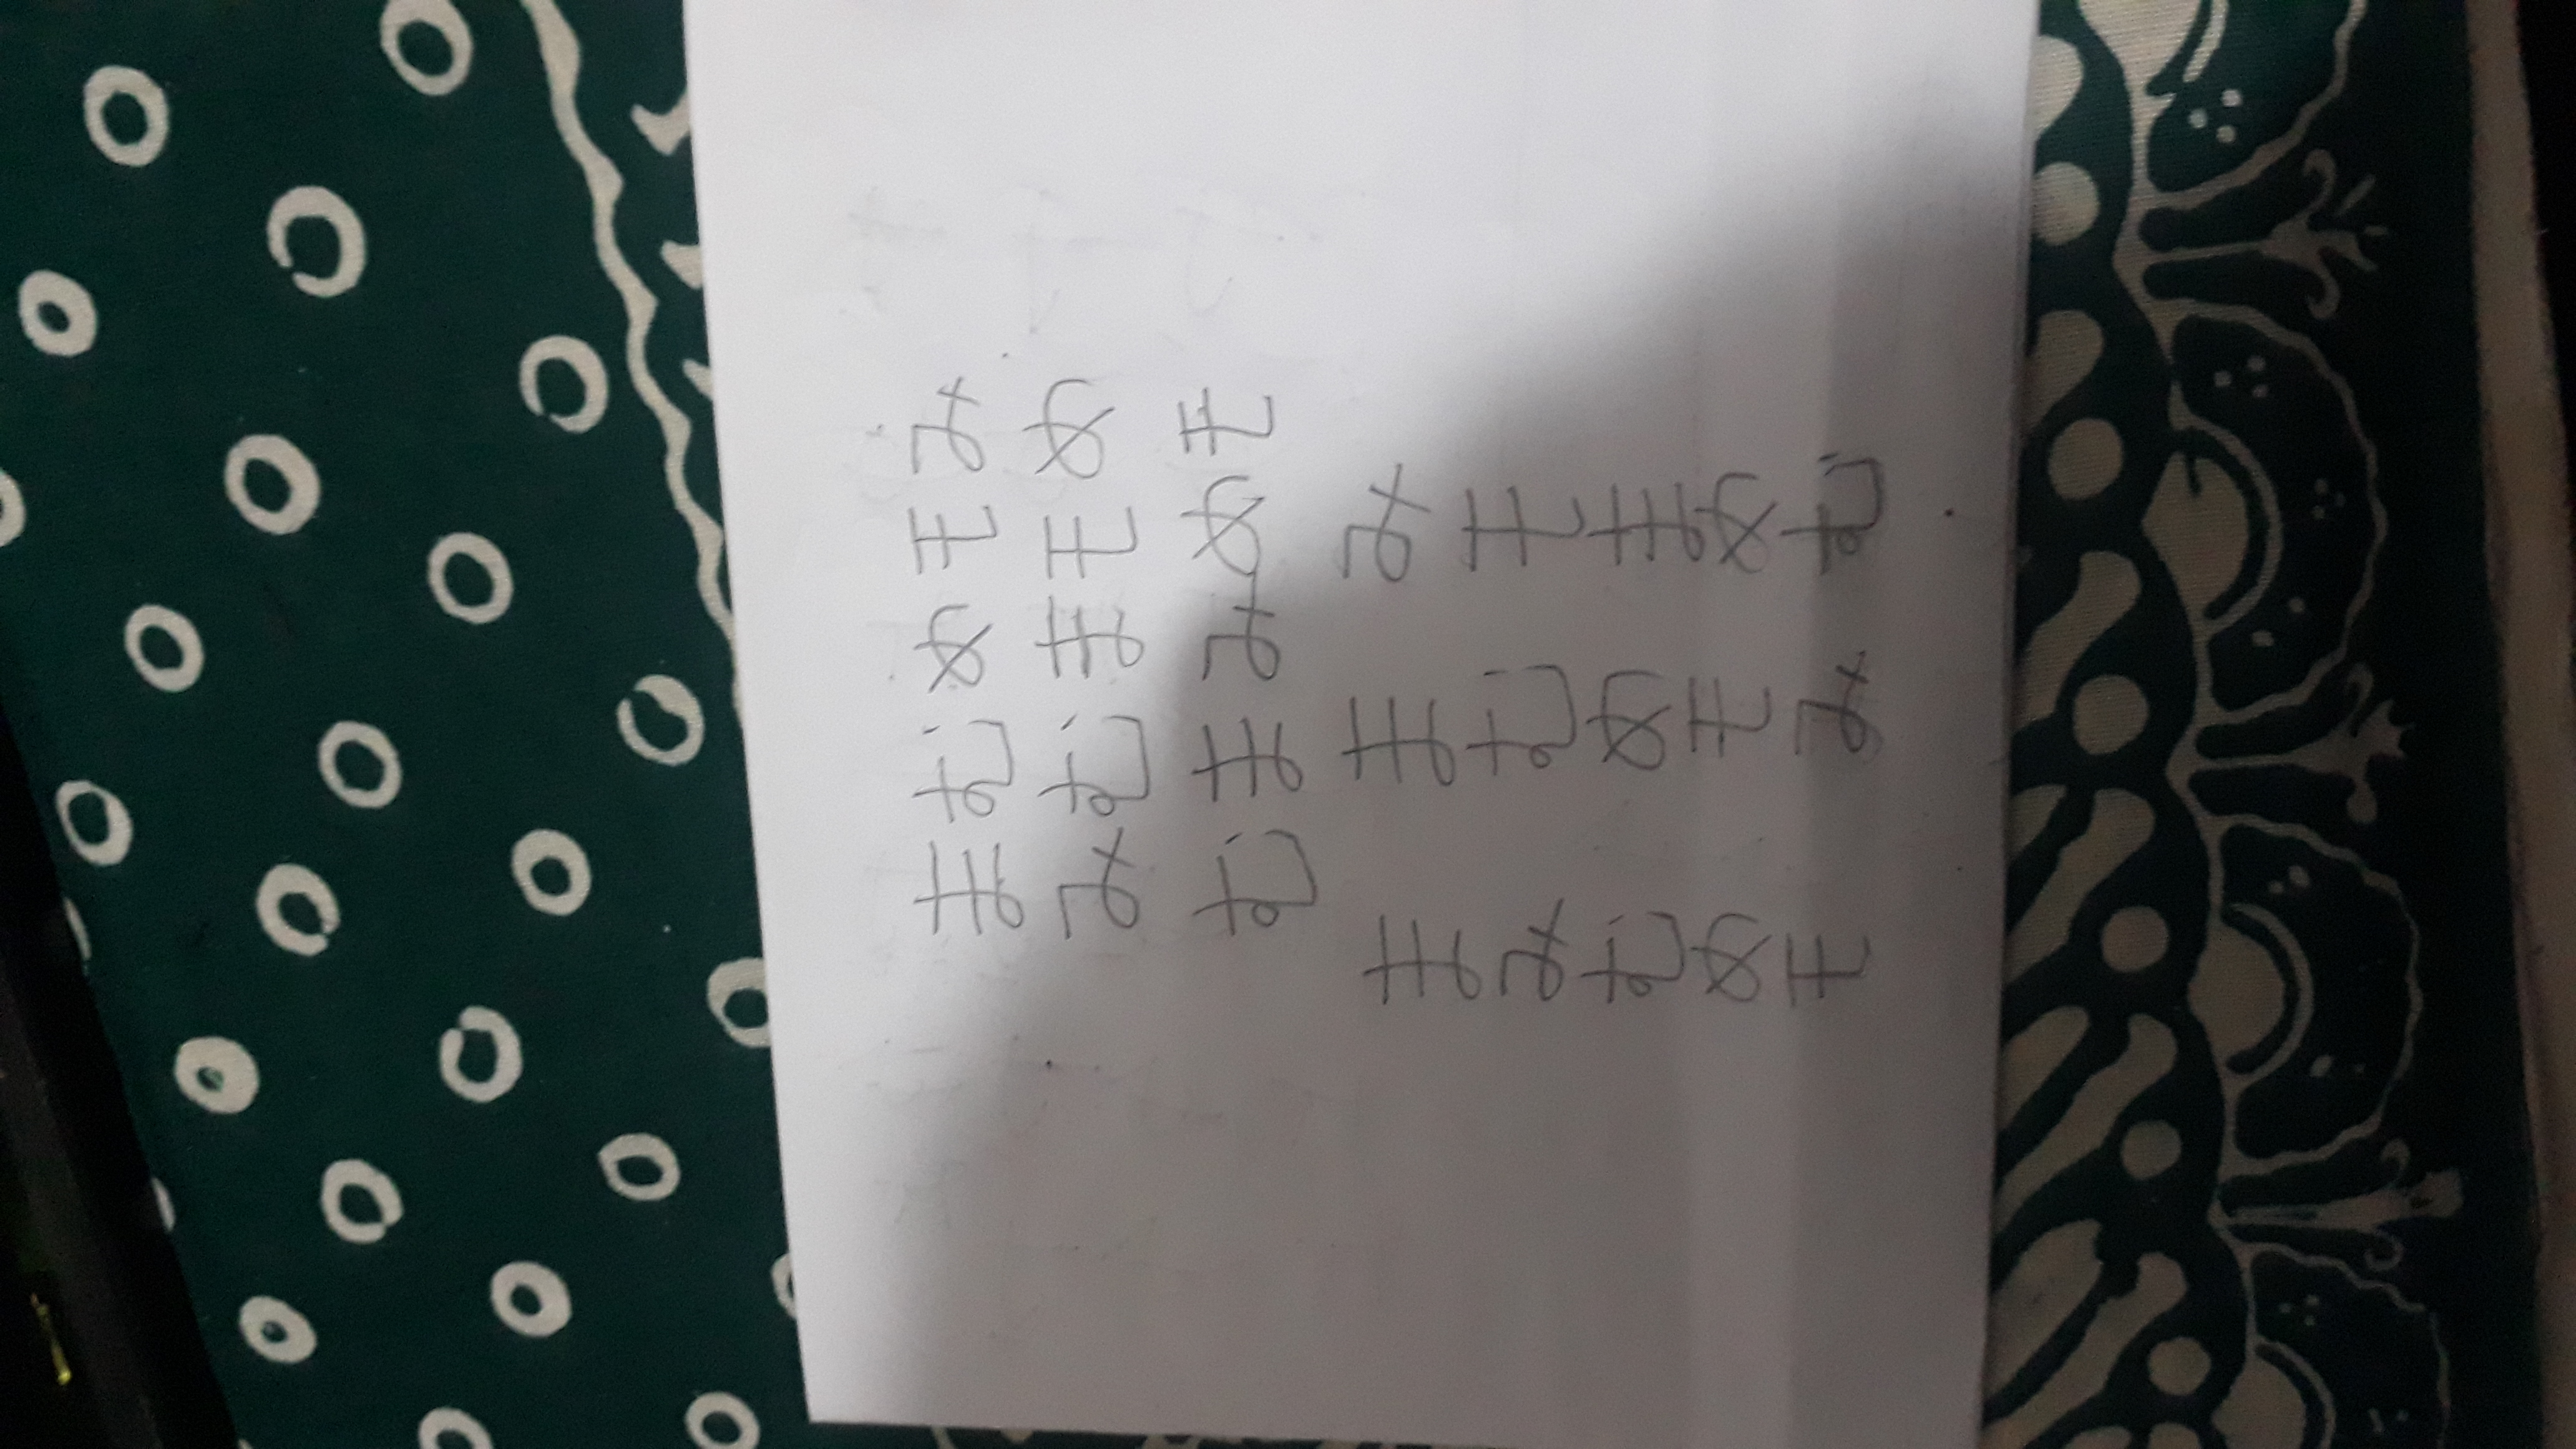 まむめモみ
みむまモめ
むまみめモ
まみむめモ
まむめモみ
みモまめむ